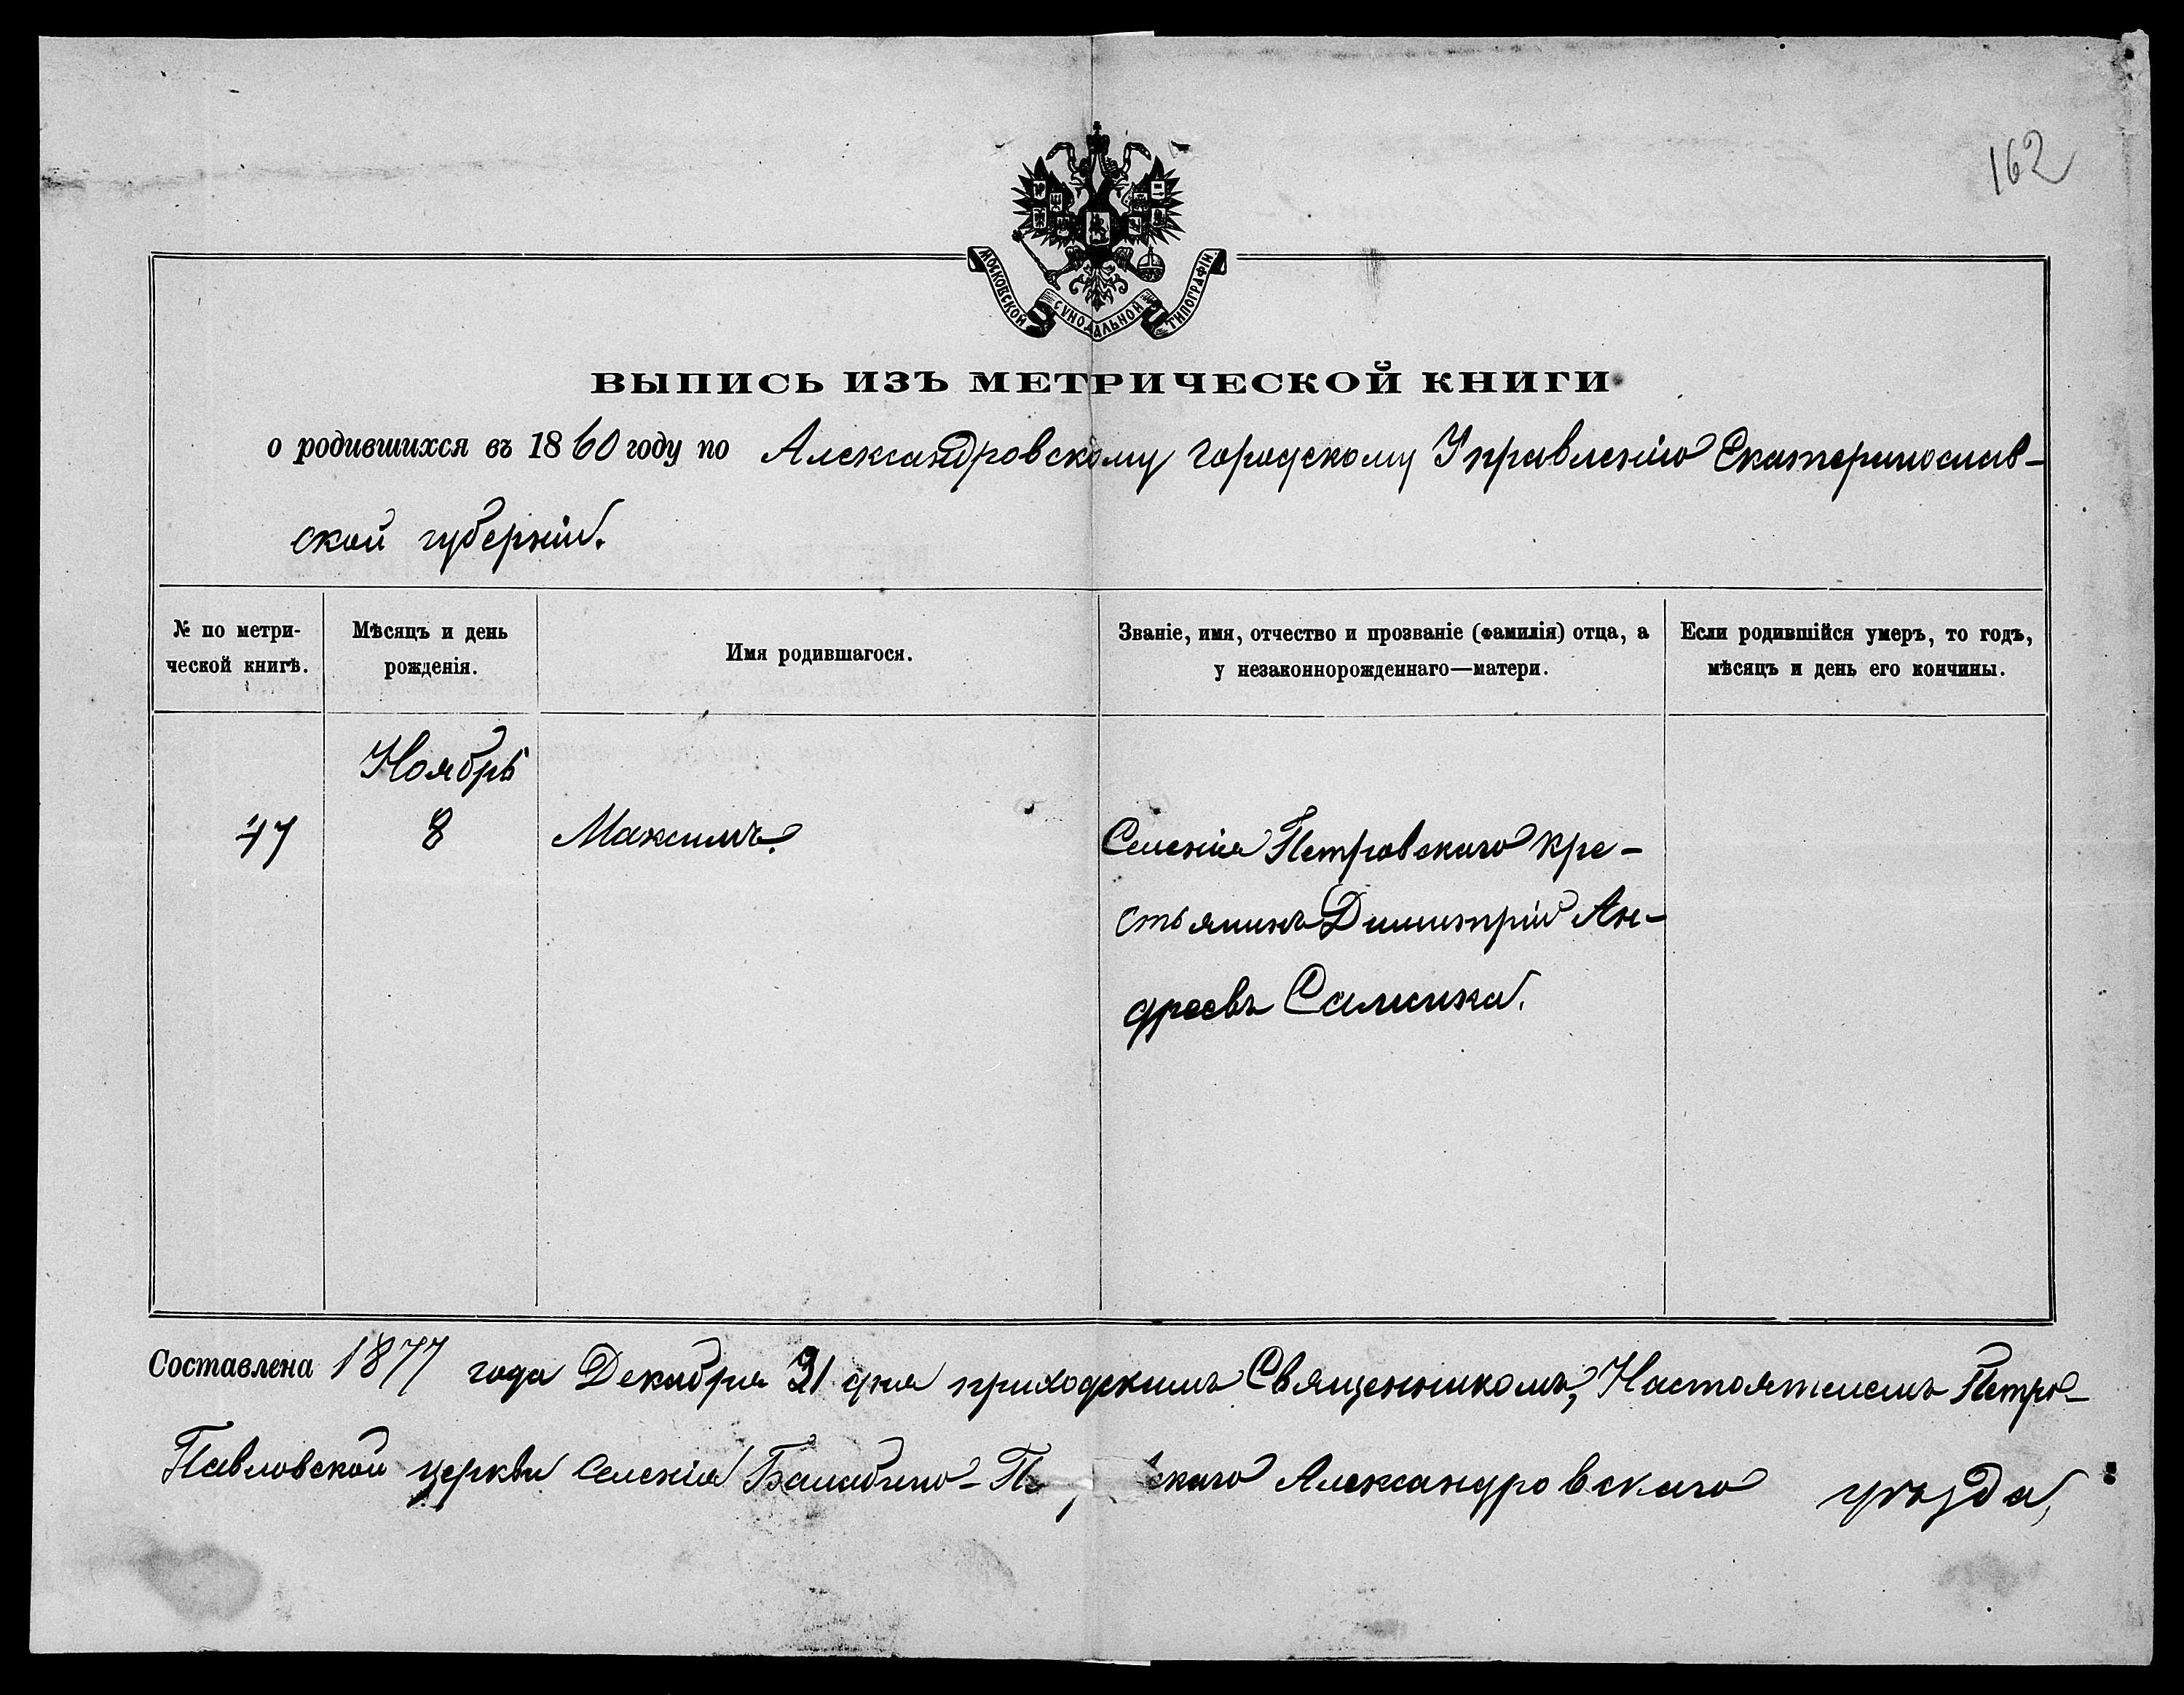 162
МОСКОВСКОЙ СѴНОДАЛЬНОЙ ТИПОГРАФІИ
ВЫПИСЬ ИЗЪ МЕТРИЧЕСКОЙ КНИГИ
о родившихся въ 1860 году по Александровскому городскому Управленію Екатеринослав-
ской губерніи.
№ по метри-
ческой книгѣ.
Мѣсяцъ и день
рожденія.
Имя родившагося.
Званіе, имя, отчество и прозваніе (фамилія) отца, а
у незаконнорожденнаго—матери.
Если родившійся умеръ, то годъ,
мѣсяцъ и день его кончины.
Ноябрь
47 8 Максимъ.
Селенія Петровскаго кре-
стьянинъ Димитрій Ан-
дреевъ
Составлена 1877 года Декабря 31 дня приходскимъ Священникомъ, Настоятелемъ Петро-
Павловской церкви селенія Балабино-П скаго Александровскаго уѣзда,